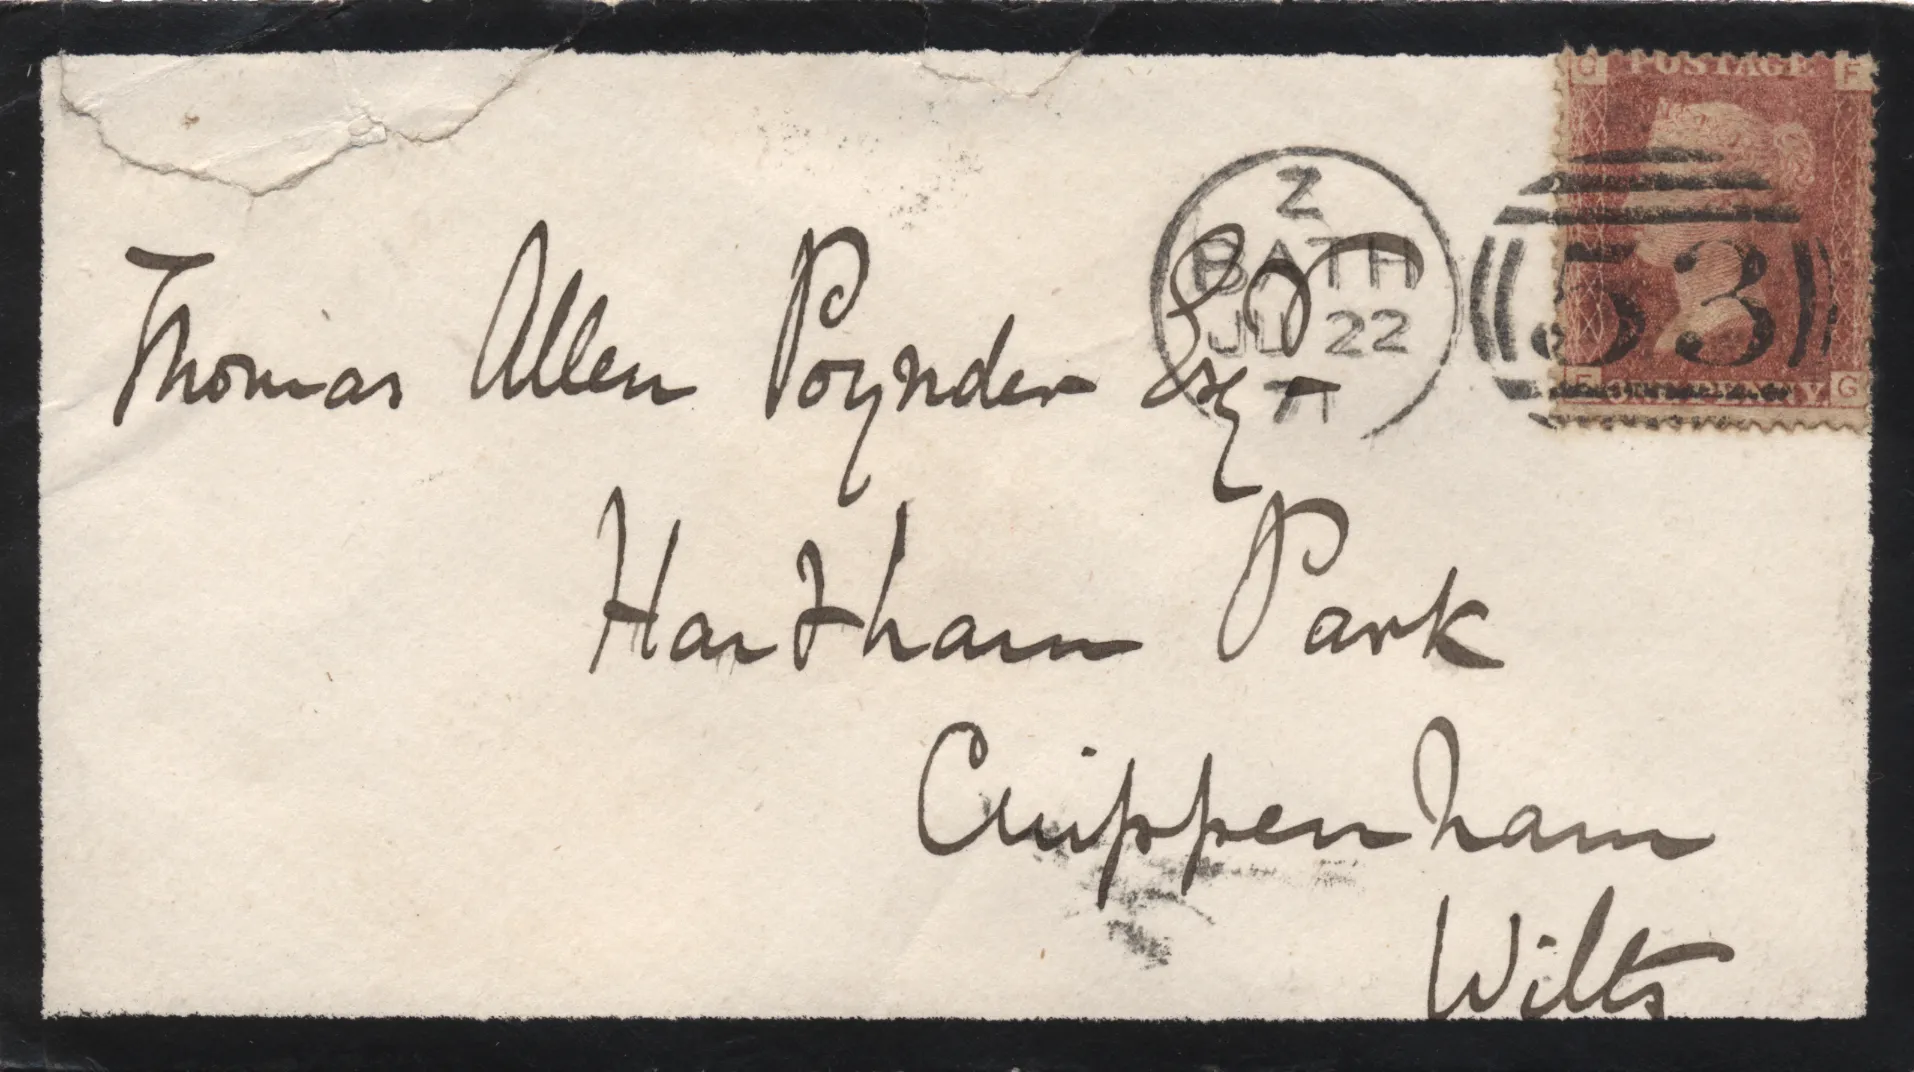 G POSTAGE F
Z
BATH
JU 22
71
53
F ONE PENNY G
Thomas Allen Poynder Esqr
Hartham Park
Chippenham
Wilts